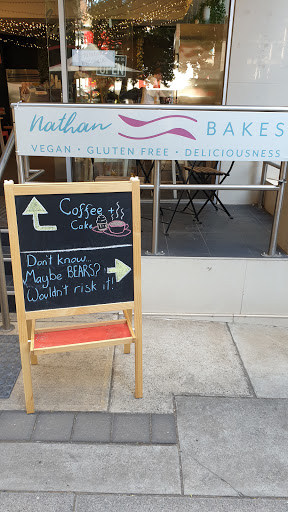 OPEN
nathan BAKES
VEGAN · GLUTEN FREE · DELICIOUSNESS
Coffee +
Cake
Don't know...
Maybe BEARS?
Wouldn't risk it!